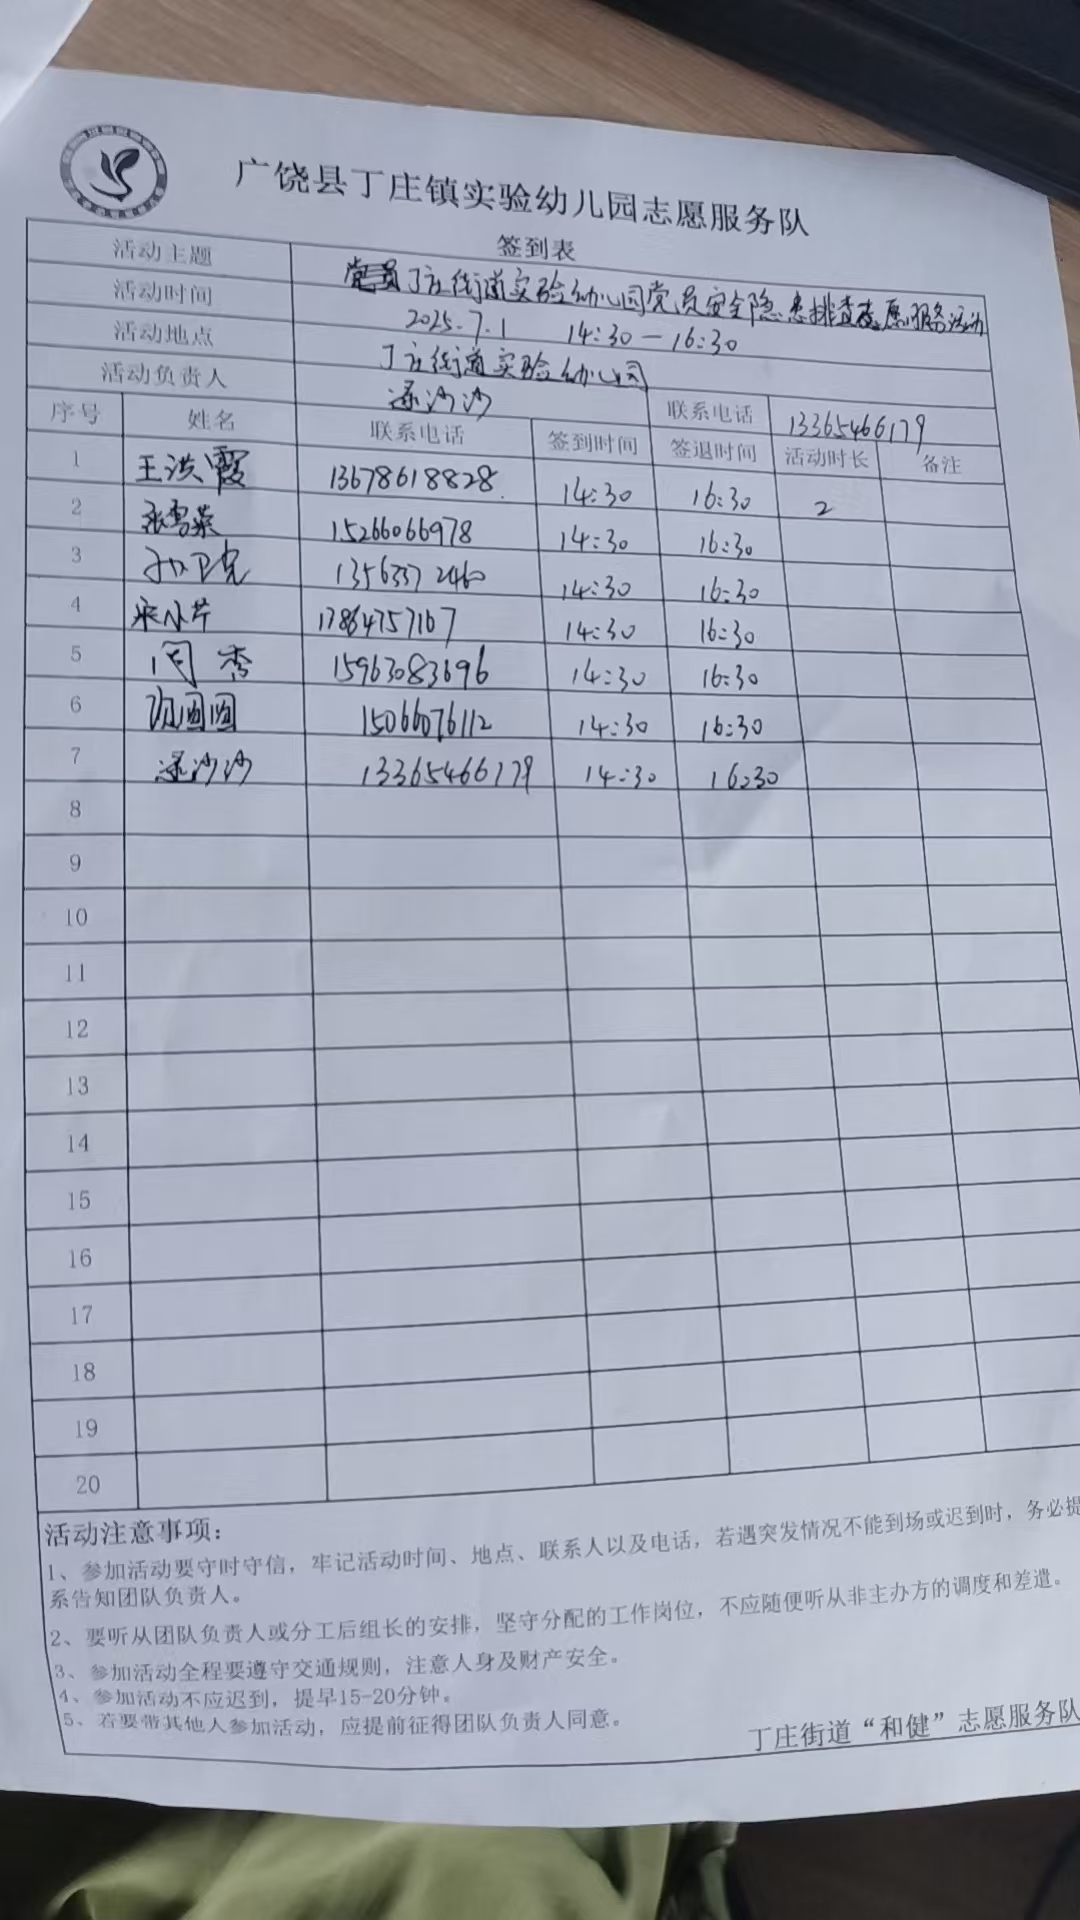 广饶县丁庄镇实验幼儿园志愿服务队
签到表
活动主题 丁庄街道实验幼儿园党员安全隐患排查志愿服务活动
活动时间 2025.7.1 14:30—16:30
活动地点 丁庄街道实验幼儿园
活动负责人 逯沙沙 联系电话 13365466179
序号 姓名 联系电话 签到时间 签退时间 活动时长 备注
1 王洪霞 13678618828 14:30 16:30 2
2 15266066978 14:30 16:30
3 14:30 16:30
4 宋小芹 14:30 16:30
5 闫秀 15963083696 14:30 16:30
6 15066076112 14:30 16:30
7 逯沙沙 13365466179 14:30 16:30
8
9
10
11
12
13
14
15
16
17
18
19
20
活动注意事项：
1、参加活动要守时守信，牢记活动时间、地点、联系人以及电话，若遇突发情况不能到场或迟到时，务必提
系告知团队负责人。
2、要听从团队负责人或分工后组长的安排，坚守分配的工作岗位，不应随便听从非主办方的调度和差遣。
3、参加活动全程要遵守交通规则，注意人身及财产安全。
4、参加活动不应迟到，提早15-20分钟。
5、若要带其他人参加活动，应提前征得团队负责人同意。
丁庄街道“和健”志愿服务队